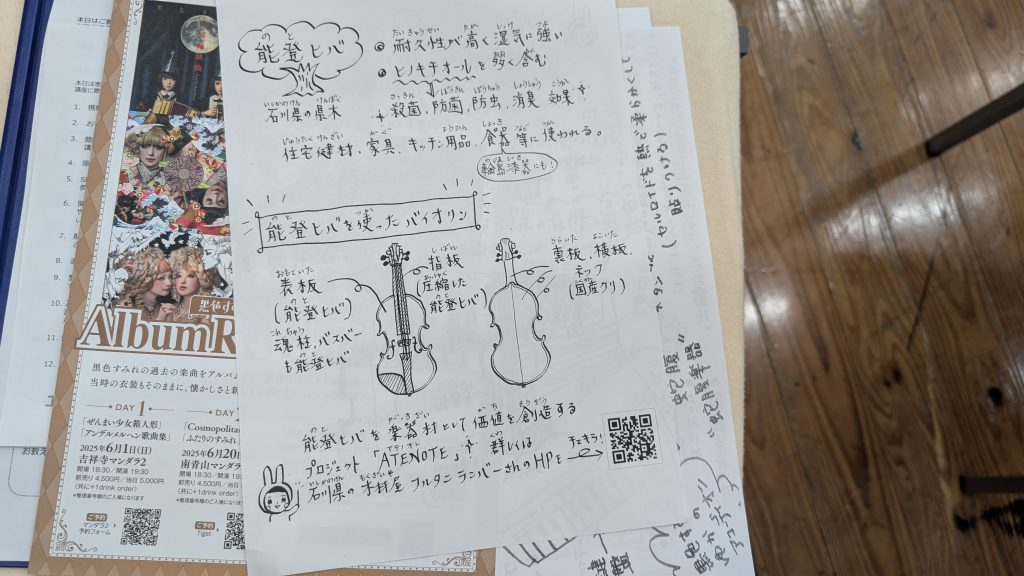 能登ヒバ
石川県の県木
耐久性が高く湿気に強い
ヒノキチオールを多く含む
殺菌、防菌、防虫、消臭 効果!
住宅健材、家具、キッチン用品、食器等に使われる。
輪島漆器にも!
能登ヒバを使ったバイオリン
表板
(能登ヒバ)
魂柱、バスバー
も能登ヒバ
指板
(圧縮した
能登ヒバ)
裏板、横板、
ネック
(国産クリ)
能登ヒバを楽器材として価値を創造する
プロジェクト「ATENOTE」 詳しくは
石川県の材木屋 フルタニランバーさんのHPを
チェキラ!
AlbumR
黒色すみれの過去の楽曲をアルバ
当時の衣装もそのままに、懐かしさと新
DAY 1
「ぜんまい少女箱人形」
「アンデルメルヘン歌曲集」
2025年6月1日(日)
吉祥寺マンダラ2
開場 18:30/開演 19:30
前売り 4,500円/当日 5,000円
(共に+1drink order)
*整理番号順のご入場になります
ご予約
マンダラ2
予約フォーム
DAY
「Cosmopolita
「ふたりのすみれ
2025年6月20
南青山マンダラ
開場 18:30/開演 19
前売り 4,500円/
(共に+1drink or
*整理番号順のご入場
ご予約
Tiget
本日はご
"蛇腹"